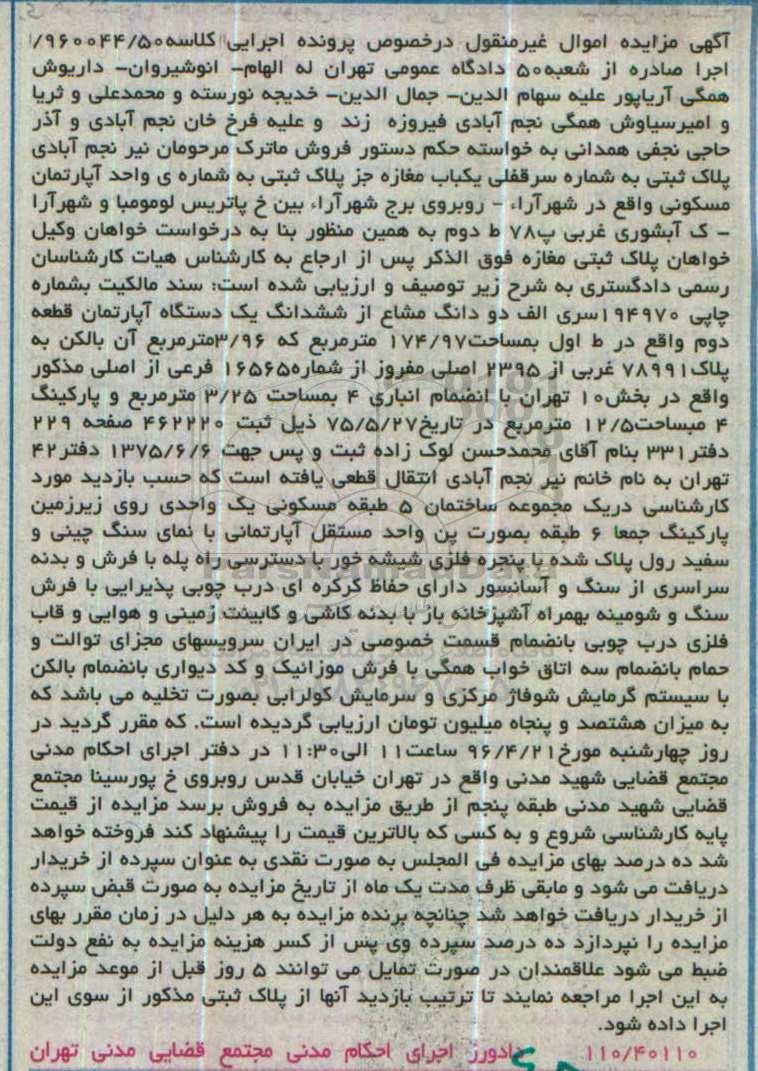 آگهی مزایده اموال غیرمنقول درخصوص پرونده اجرایی کلاسه۹۶۰۰۴۴/۵۰/
اجرا صادره از شعبه۵۰ دادگاه عمومی تهران له الهام– انوشیروان– داریوش
همگی آریاپور علیه سهام الدین– جمال الدین– خدیجه نورسته و محمدعلی و ثریا
و امیرسیاوش همگی نجم آبادی فیروزه زند و علیه فرخ خان نجم آبادی و آذر
حاجی نجفی همدانی به خواسته حکم دستور فروش ماترک مرحومان نیر نجم آبادی
پلاک ثبتی به شماره سرقفلی یکباب مغازه جز پلاک ثبتی به شماره ی واحد آپارتمان
مسکونی واقع در شهرآراء – روبروی برج شهرآراء بین خ پاتریس لومومبا و شهرآرا
– ک آبشوری غربی پ۷۸ ط دوم به همین منظور بنا به درخواست خواهان وکیل
خواهان پلاک ثبتی مغازه فوق الذکر پس از ارجاع به کارشناس هیات کارشناسان
رسمی دادگستری به شرح زیر توصیف و ارزیابی شده است: سند مالکیت بشماره
چاپی ۱۹۴۹۷۰سری الف دو دانگ مشاع از ششدانگ یک دستگاه آپارتمان قطعه
دوم واقع در ط اول بمساحت۱۷۴/۹۷ مترمربع که ۳/۹۶مترمربع آن بالکن به
پلاک۷۸۹۹۱ غربی از ۲۳۹۵ اصلی مفروز از شماره۱۶۵۶۵ فرعی از اصلی مذکور
واقع در بخش۱۰ تهران با انضمام انباری ۴ بمساحت ۳/۲۵ مترمربع و پارکینگ
۴ مبساحت۱۲/۵ مترمربع در تاریخ۷۵/۵/۲۷ ذیل ثبت ۴۶۲۲۲۰ صفحه ۲۲۹
دفتر۳۳۱ بنام آقای محمدحسن لوک زاده ثبت و پس جهت ۱۳۷۵/۶/۶ دفتر۴۲
تهران به نام خانم نیر نجم آبادی انتقال قطعی یافته است که حسب بازدید مورد
کارشناسی دریک مجموعه ساختمان ۵ طبقه مسکونی یک واحدی روی زیرزمین
پارکینگ جمعا ۶ طبقه بصورت پن واحد مستقل آپارتمانی با نمای سنگ چینی و
سفید رول پلاک شده با پنجره فلزی شیشه خور با دسترسی راه پله با فرش و بدنه
سراسری از سنگ و آسانسور دارای حفاظ کرکره ای درب چوبی پذیرایی با فرش
سنگ و شومینه بهمراه آشپزخانه باز با بدنه کاشی و کابینت زمینی و هوایی و قاب
فلزی درب چوبی بانضمام قسمت خصوصی در ایران سرویسهای مجزای توالت و
حمام بانضمام سه اتاق خواب همگی با فرش موزائیک و کد دیواری بانضمام بالکن
با سیستم گرمایش شوفاژ مرکزی و سرمایش کولرابی بصورت تخلیه می باشد که
به میزان هشتصد و پنجاه میلیون تومان ارزیابی گردیده است. که مقرر گردید در
روز چهارشنبه مورخ۹۶/۴/۲۱ ساعت۱۱ الی۱۱:۳۰ در دفتر اجرای احکام مدنی
مجتمع قضایی شهید مدنی واقع در تهران خیابان قدس روبروی خ پورسینا مجتمع
قضایی شهید مدنی طبقه پنجم از طریق مزایده به فروش برسد مزایده از قیمت
پایه کارشناسی شروع و به کسی که بالاترین قیمت را پیشنهاد کند فروخته خواهد
شد ده درصد بهای مزایده فی المجلس به صورت نقدی به عنوان سپرده از خریدار
دریافت می شود و مابقی ظرف مدت یک ماه از تاریخ مزایده به صورت قبض سپرده
از خریدار دریافت خواهد شد چنانچه برنده مزایده به هر دلیل در زمان مقرر بهای
مزایده را نپردازد ده درصد سپرده وی پس از کسر هزینه مزایده به نفع دولت
ضبط می شود علاقمندان در صورت تمایل می توانند ۵ روز قبل از موعد مزایده
به این اجرا مراجعه نمایند تا ترتیب بازدید آنها از پلاک ثبتی مذکور از سوی این
اجرا داده شود.
۱۱۰/۴۰۱۱۰ دادورز اجرای احکام مدنی مجتمع قضایی مدنی تهران